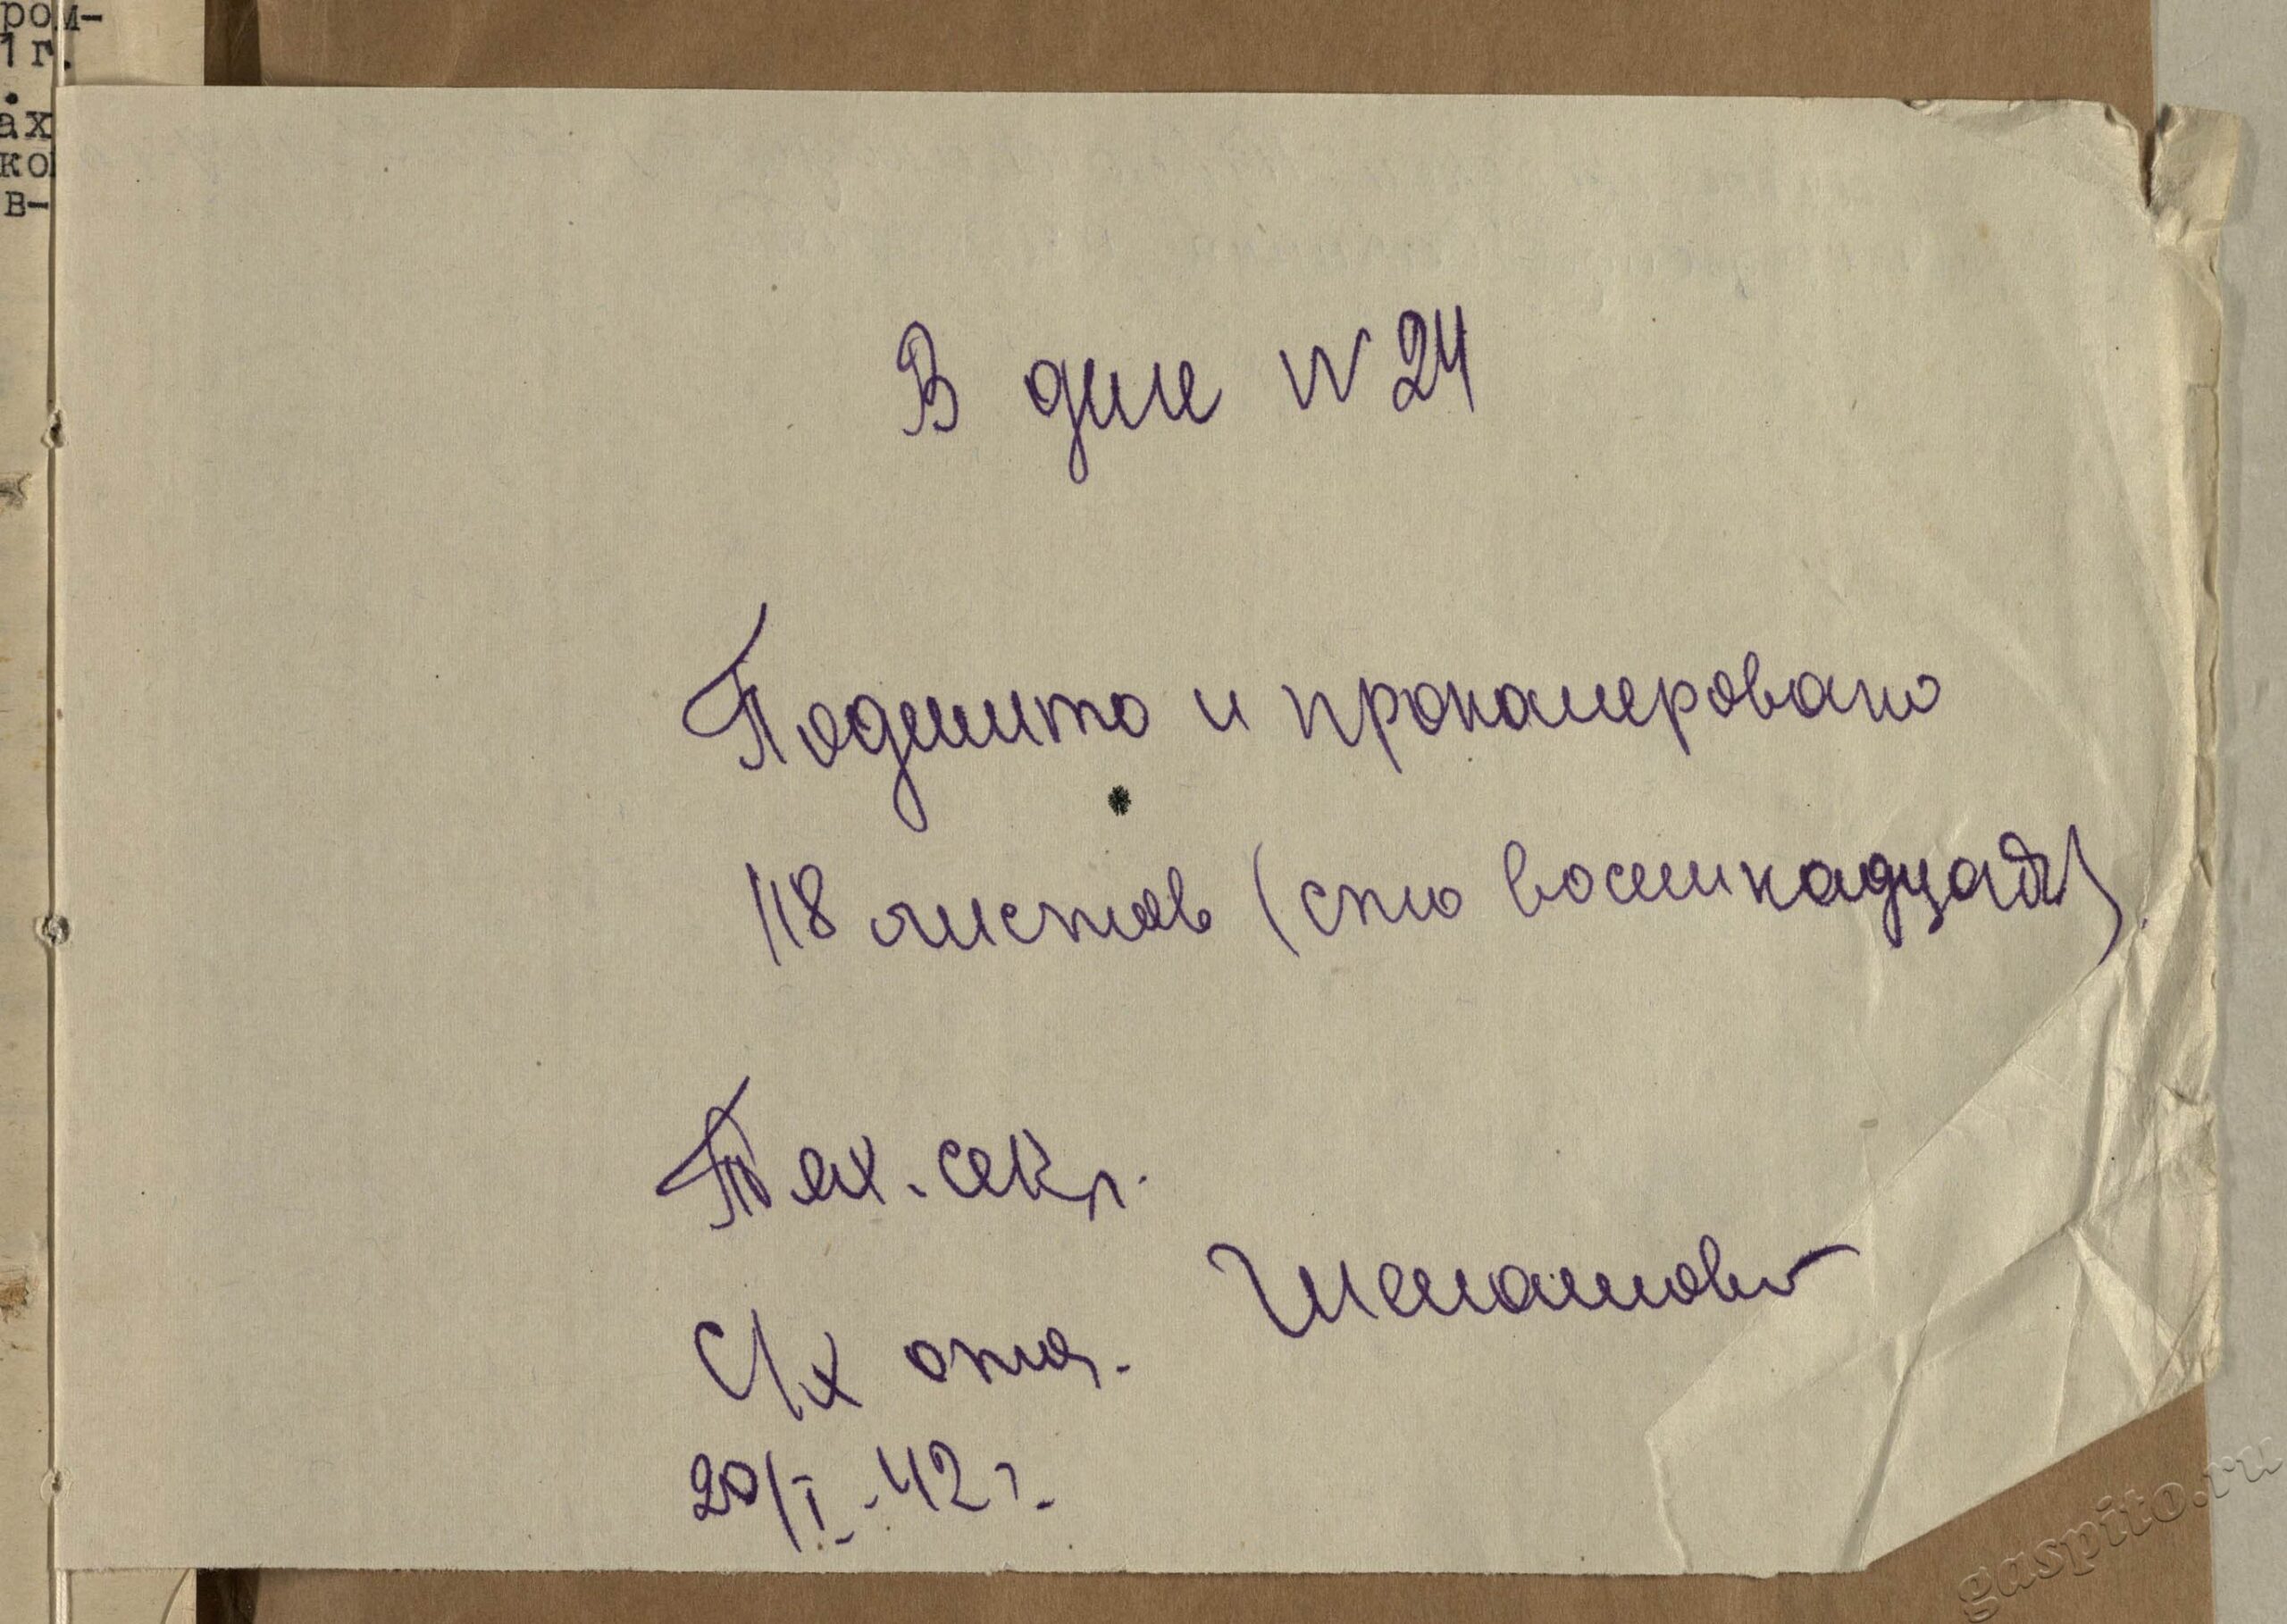 ром-
1г.
ах
ко
в-
В деле N 24
Подшито и прономеровано
118 листов (сто восемнадцать)
Тех. секр.
С/х отд.
20/I - 42 г.
gaspito.ru